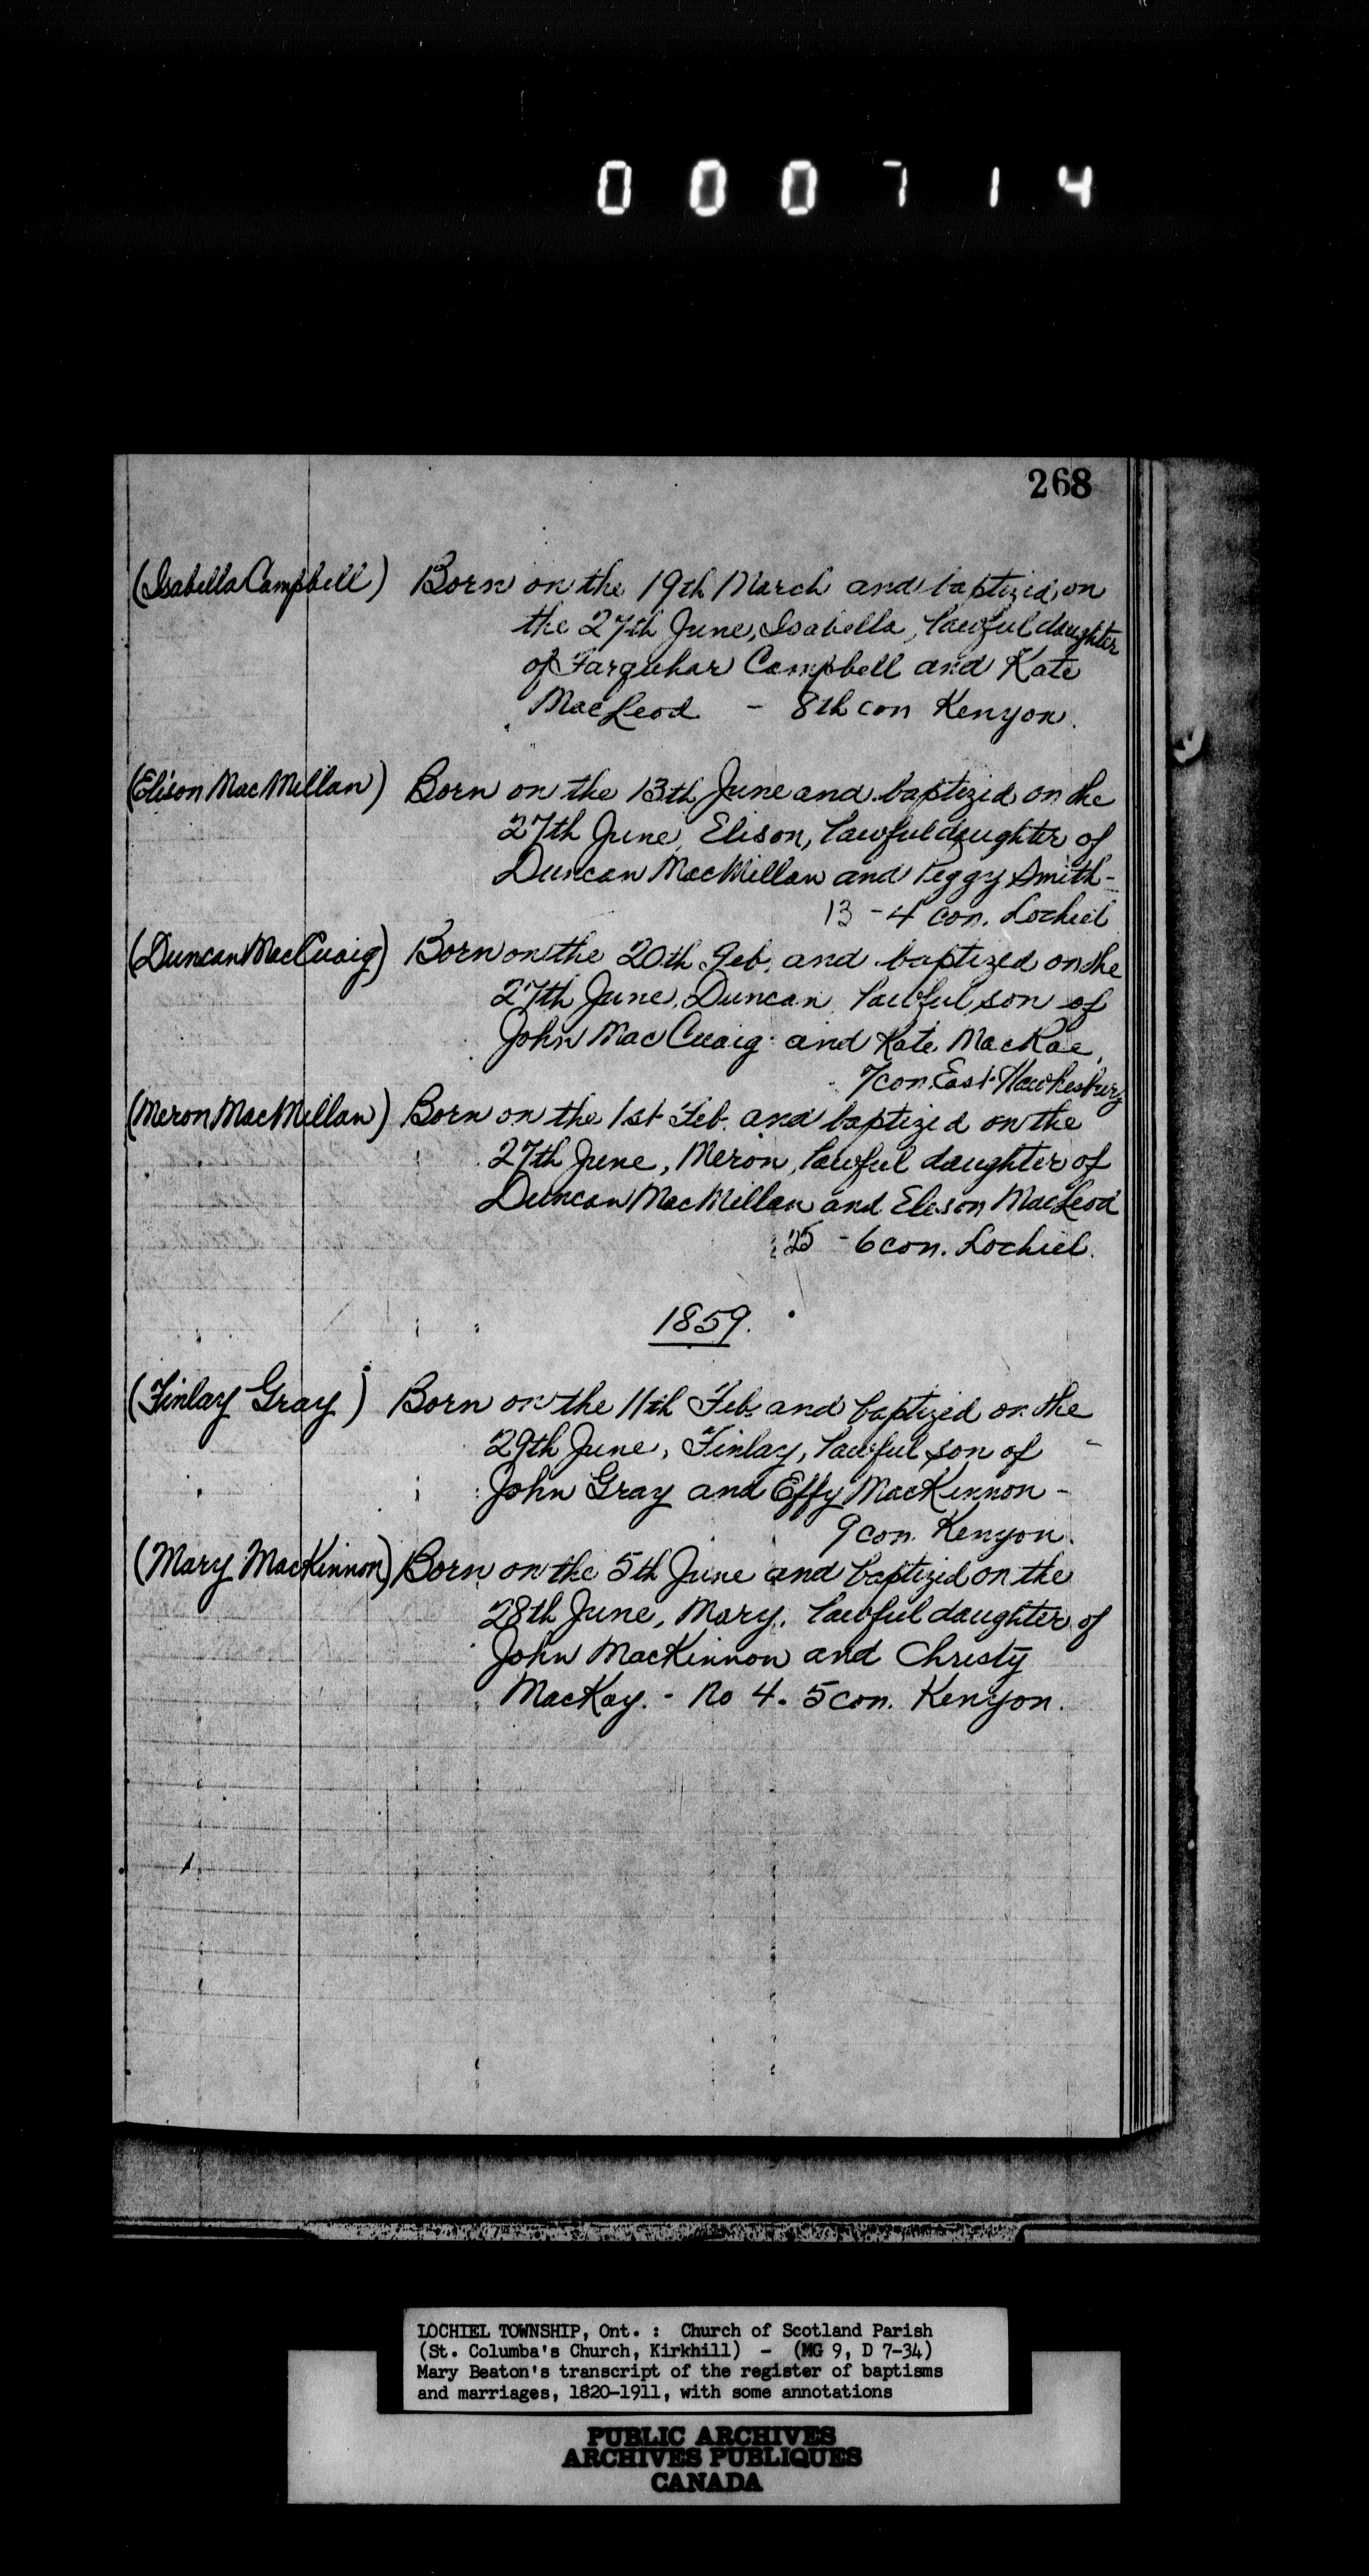 000714
268
(Isabella Campbell) Born on the 19th March and baptized on
the 27th June, Isabella, lawful daughter
of Farquhar Campbell and Kate
MacLeod - 8th con Kenyon.
(Elison MacMillan) Born on the 13th June and baptized on the
27th June, Elison, lawful daughter of
Duncan MacMillan and Peggy Smith -
13 - 4 con. Lochiel
(Duncan MacCuaig) Born on the 20th Feb. and baptized on the
27th June, Duncan, lawful son of
John MacCuaig and Kate MacRae,
7 con. East Hawkesbury
(Meron MacMillan) Born on the 1st Feb. and baptized on the
27th June, Meron, lawful daughter of
Duncan MacMillan and Elison MacLeod
25 - 6 con. Lochiel.
1859.
(Finlay Gray) Born on the 11th Feb. and baptized on the
29th June, Finlay, lawful son of
John Gray and Effy MacKinnon -
9 con. Kenyon.
(Mary MacKinnon) Born on the 5th June and baptized on the
28th June, Mary, lawful daughter of
John MacKinnon and Christy
MacKay. - No 4. 5 con. Kenyon.
LOCHIEL TOWNSHIP, Ont. : Church of Scotland Parish
(St. Columba's Church, Kirkhill) - (MG 9, D 7-34)
Mary Beaton's transcript of the register of baptisms
and marriages, 1820-1911, with some annotations
PUBLIC ARCHIVES
ARCHIVES PUBLIQUES
CANADA